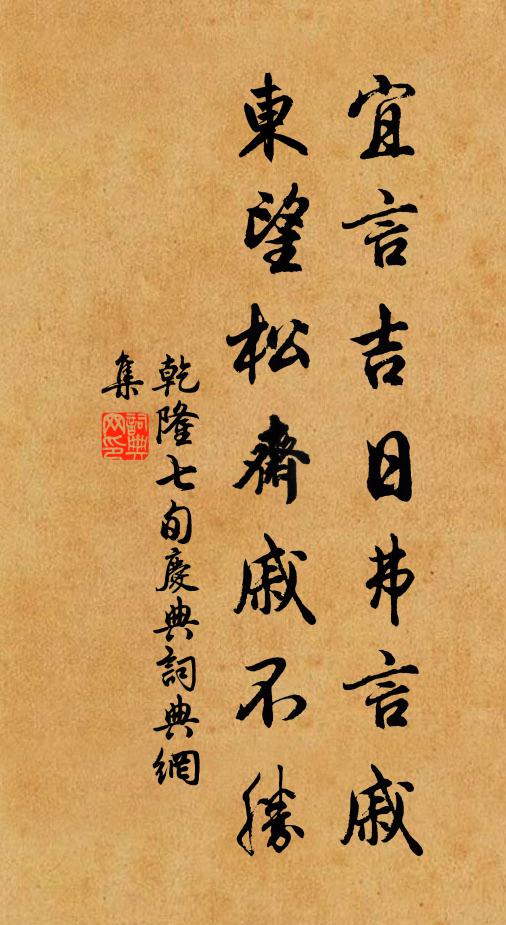 宜言吉日弗言戚
東望松齋戚不勝
乾隆七旬慶典詞典網
集
詞典网印